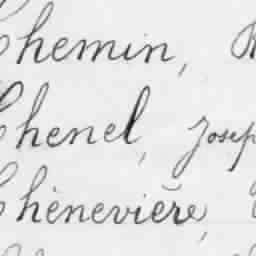 Chemin,
Chenel, Josep
Chènevière,